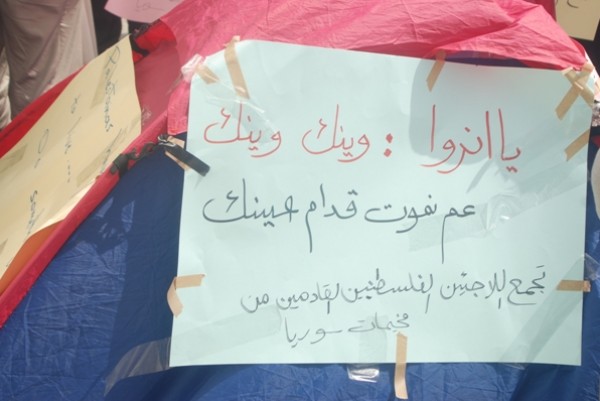 يا انروا : وينك وينك
عم نموت قدام عينك
تجمع اللاجئين الفلسطينيين القادمين من
مخيمات سوريا